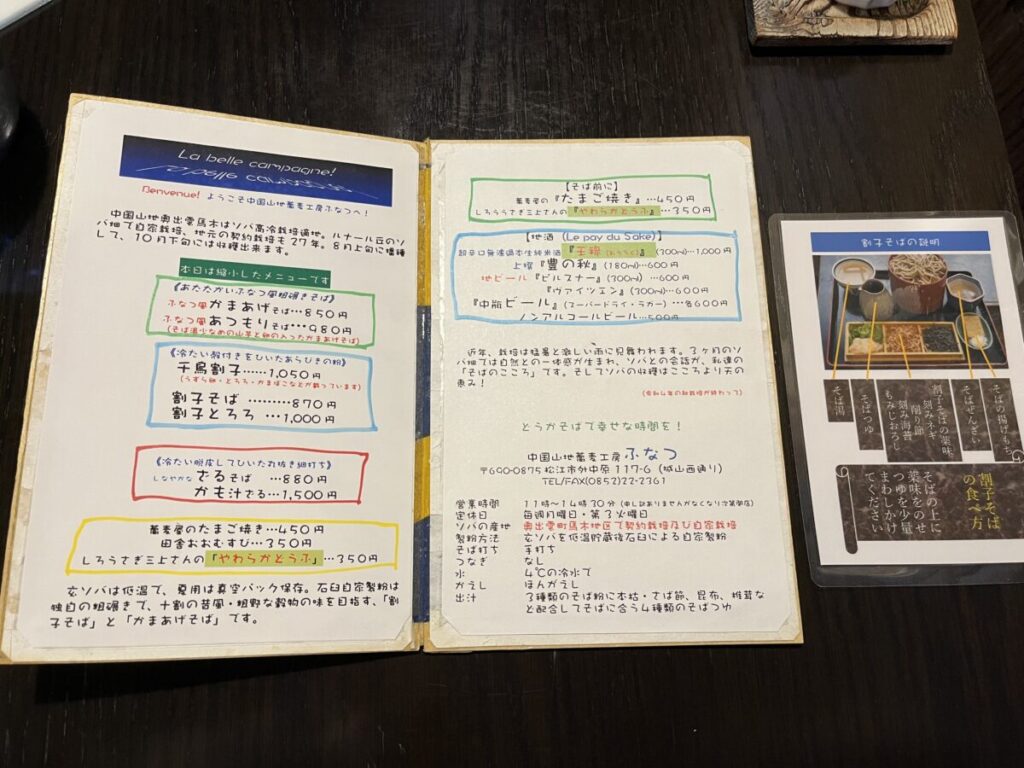 La belle campagne!
Benvenue! ようこそ中国山地蕎麦工房ふなつへ!
中国山地奥出雲馬木はソバ高冷栽培適地。ルナール豆のソ
バ畑で自家栽培、地元の契約栽培も27年。8月上旬に播種
して、10月下旬には収穫出来ます。
本日は縮小したメニューです
《あたたかいふなつ風粗碾きそば》
ふなつ風かまあげそば…850円
ふなつ風あつもりそば…980円
(そば湯少なめの山芋と卵の入ったかまあげそば)
《冷たい殻付きをひいたあらびきの粉》
千鳥割子……1,050円
(うずら卵・とろろ・かまぼこなどが載っています)
割子そば ………870円
割子とろろ …1,000円
《冷たい脱皮してひいたれ抜き細打ち》
しなやかな でるそば …880円
かも汁でる…1,500円
蕎麦屋のたまご焼き…450円
田舎おおむすび…350円
しろうさぎ三上さんの「やわらかとうふ」…350円
玄ソバは低温で、夏用は真空パック保存。石臼自家製粉は
独自の粗碾きで、十割の昔風・粗野な穀物の味を目指す、「割
子そば」と「かまあげそば」です。
【そば前に】
蕎麦屋の『たまご焼き』…450円
しろうさぎ三上さんの『やわらかとうふ』…350円
【地酒 (Le pay du Sake)】
超辛口無濾過本生純米酒『王祿(おうろく)』(300ml)…1,000円
上撰『豊の秋』(180ml)…600円
地ビール『ピルスナー』(300ml) …600円
『ヴァイツェン』(300ml)…600円
『中瓶ビール』(スーパードライ・ラガー) …各600円
ノンアルコールビール…500円
近年、栽培は猛暑と激しい雨に見舞われます。3ヶ月のソ
バ畑では自然との一体感が生まれ、ソバとの会話が、私達の
「そばのこころ」です。そしてソバの収穫はこころより天の
恵み!
(令和4年の秋栽培が終わって)
どうかそばで幸せな時間を!
中国山地蕎麦工房ふなつ
〒690-0875 松江市外中原117-6 (城山西通り)
TEL/FAX(0852)22-2361
営業時間 11時~14時30分(申し訳ありませんがなくなり次第御店)
定休日 毎週月曜日・第3火曜日
ソバの産地 奥出雲町馬木地区で契約栽培及び自家栽培
製粉方法 玄ソバを低温貯蔵後石臼による自家製粉
そば打ち 手打ち
つなぎ なし
水 4℃の冷水で
かえし ほんがえし
出汁 3種類のそば粉に本枯・さば節、昆布、椎茸な
ど配合してそばに合う4種類のそばつゆ
割子そばの説明
そばの揚げもち
そばぜんざい
割子そばの薬味
刻みネギ
削り節
刻み海苔
もみじおろし
そばつゆ
そば湯
割子そば
の食べ方
そばの上に
薬味をのせ
つゆを少量
まわしかけ
てください